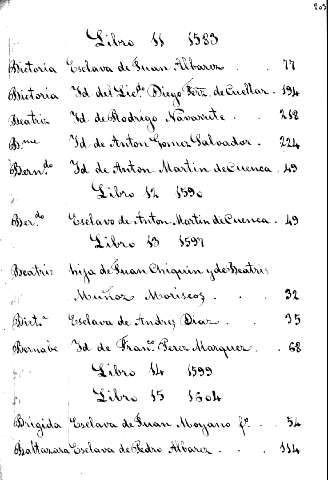 203
Libro 11 1583
Victoria Esclava de Juan Albarez . . 77
Victoria Id del Lic.do Diego Frz. de Cuellar . 194
Beatriz Id. de Rodrigo Navarrete . . 218
B.me Id. de Anton Gomz Salvador . 224
Bern.do Id. de Anton Martin de Cuenca . 49
Libro 12 1590
Ber.do Esclavo de Anton Martin de Cuenca . 49
Libro 13 1597
Beatriz hija de Juan Chiquin y de Beatris
Muñoz Moriscos . . . 32
Vict.a Esclava de Andres Diaz . . . 35
Bernabe Id. de Fran.co Perez Marquez . . 68
Libro 14 1599
Libro 15 1604
Brigida Esclava de Juan Moyano . . 54
Baltazara Esclava de Pedro Albarez . . . 114